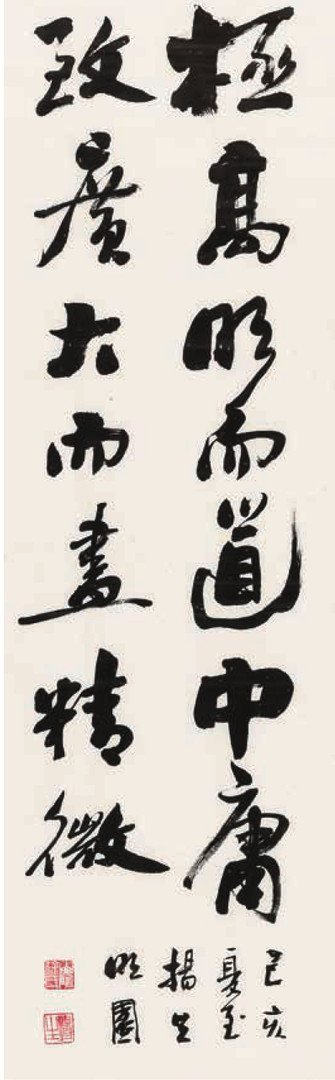 極高明而道中庸
致廣大而盡精微
己亥
夏至
揚生
明園